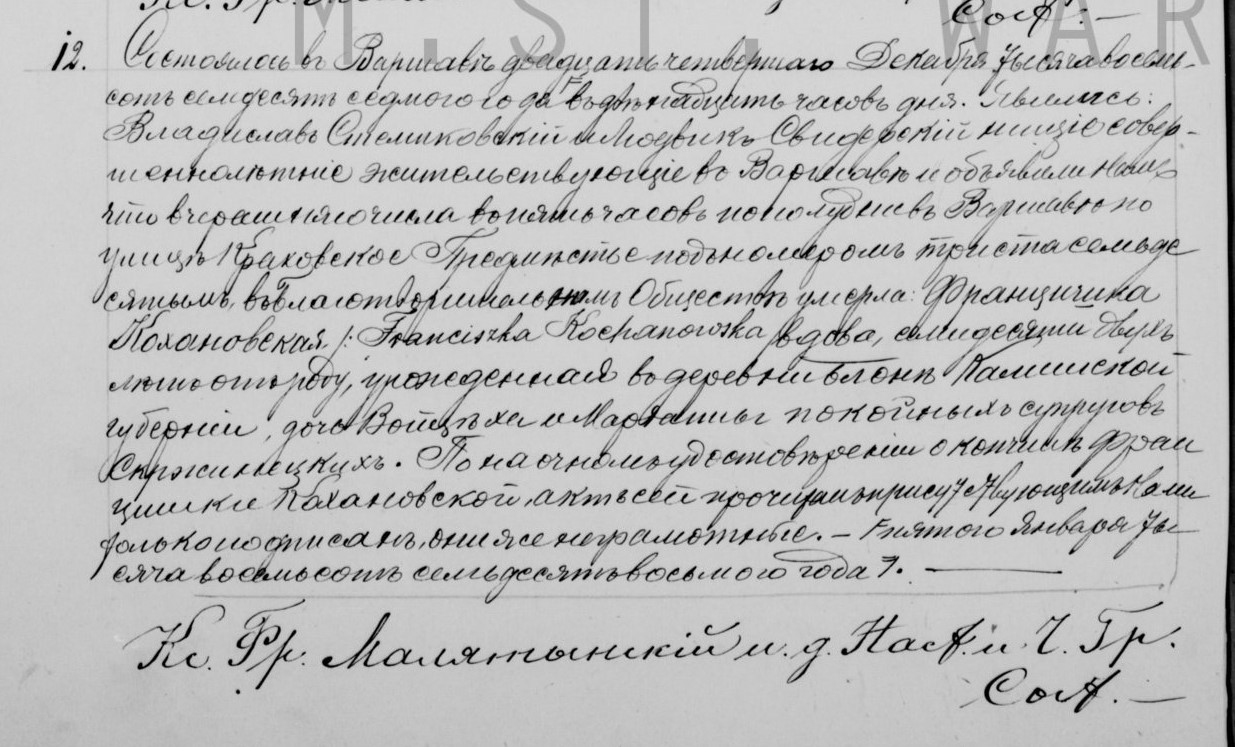 M. ST. WAR
СоА. —
12. Состоялось въ Варшавѣ двадцать четвертаго Декабря тысяча восемь-
сотъ семдесятъ седмого года въ двѣнадцать часовъ дня. Явились:
Владиславъ Стемпковскій и Людвикъ Свидерскій нищіе совер-
шеннолѣтніе жительствующіе въ Варшавѣ и объявили намъ
что вчерашняго числа въ пять часовъ пополудни въ Варшавѣ по
улицѣ Краковское Предмѣстье подъ номеромъ триста семьде
сятымъ, въ Благотворительномъ Обществѣ умерла: Францишка
Кохановская /: Franciszka Kochanowska / вдова, семидесяти двухъ
лѣтъ отъ роду, урожденная въ деревни Блонѣ Калишской
губерніи, дочь Войцѣха и Маріанны покойныхъ супруговъ
Скржинецкихъ. По наочномъ удостовѣреніи о кончинѣ Фран
цишки Кохановской, актъ сей прочитанъ присутствующимъ Нами
только подписанъ, они же неграмотные. — пятого Января ты
сяча восемьсотъ семьдесятъ восьмого года. —
Кс. Фр. Малятынскій и. д. Наст. и Ч. Гр.
СоА. —